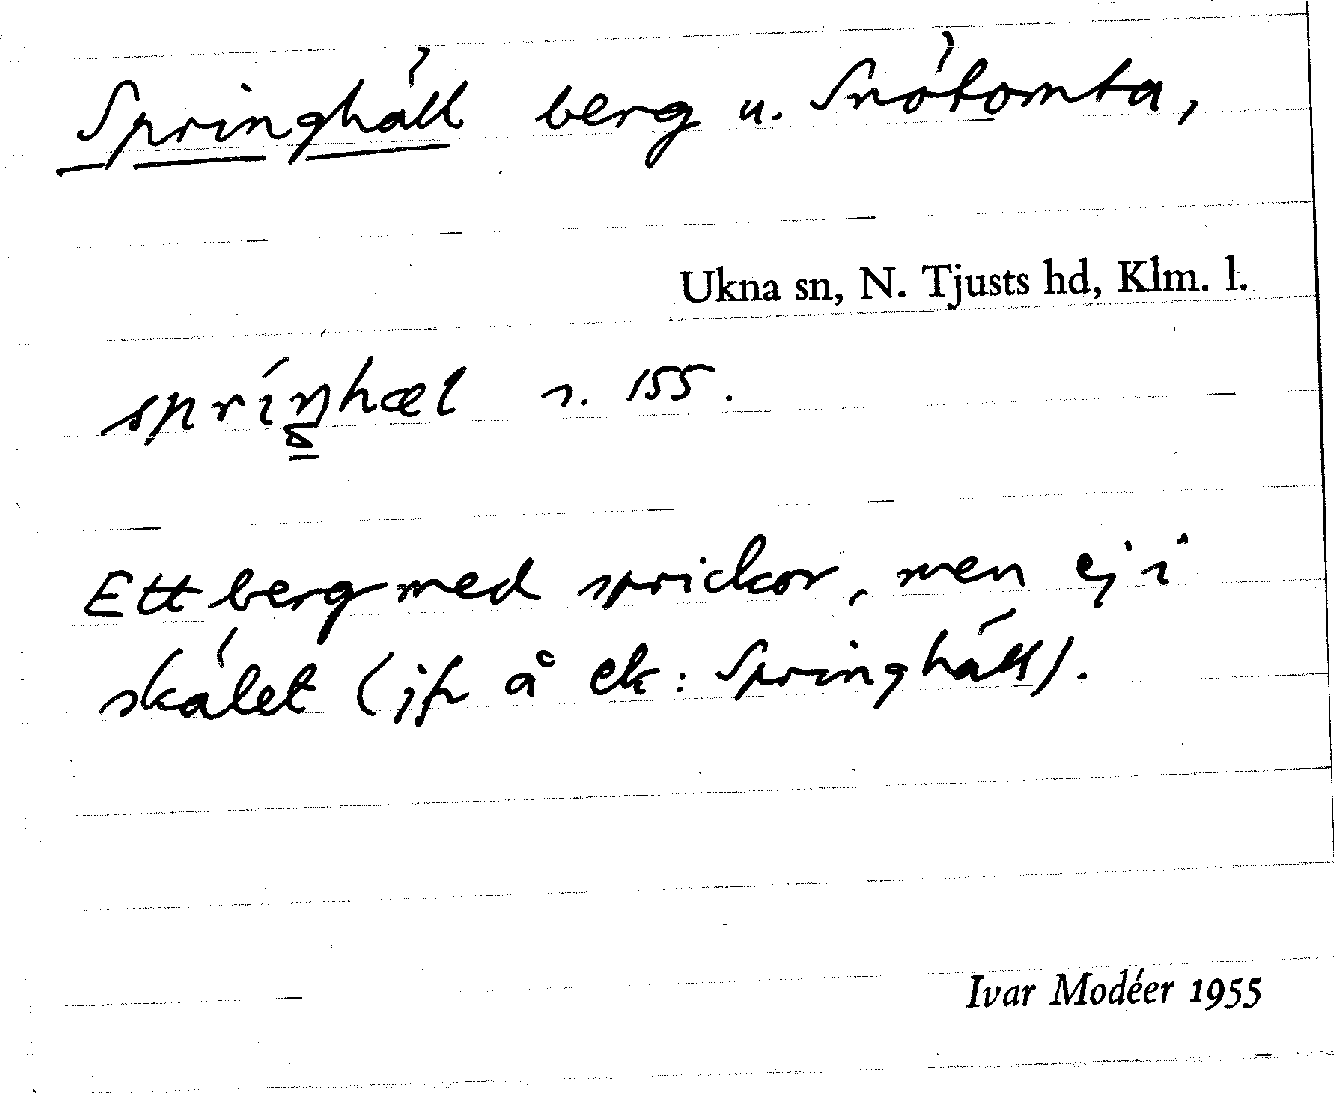 Springhäll berg u. Snötomta,
Ukna sn, N. Tjusts hd, Klm. l.
spríŋhæl s. 155.
Ett berg med sprickor, men ej i
skälet (jfr å ek: Springhäll).
Ivar Modéer 1955